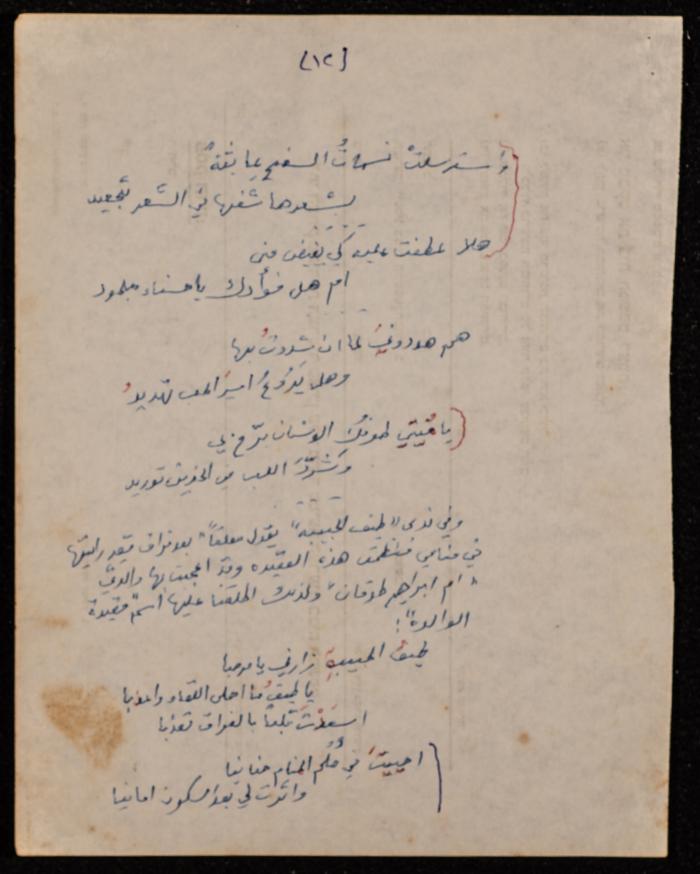 (١٢)
واسترسلتْ نسماتُ السفح عابثةً
بشعرها شفها في الشعر تجعيد
هلا عطفت عليه كي يفيض منى
ام هل فؤادك يا حسناء جلمود
هم هددوني لما ان شدوت بها
وهل يَرُوعُ اسير الحب تهديدُ
يا فتنتي طرفك الوسنان برّح بي
وشرّدَ اللب من الخدين توريد
وفي ندى "طيف الحبيبه" يقول معلقاً "بعد فراق رايتها
في منامي فنظمت هذه القصيده وقد اعجبت بها والدتي
"ام ابراهيم طوقان" ولذلك اطلقنا عليها اسم "قصيدة
الوالدة":
طيفُ الحبيبةِ زارني يا مرحبا
يا طيفُ ما احلى اللقاء واعذبا
اسعَدْتَ قلباً بالفراق تعذبا
احييتَ في حُلُم المنام حنانيا
واثرت لي بعد السكون امانيا